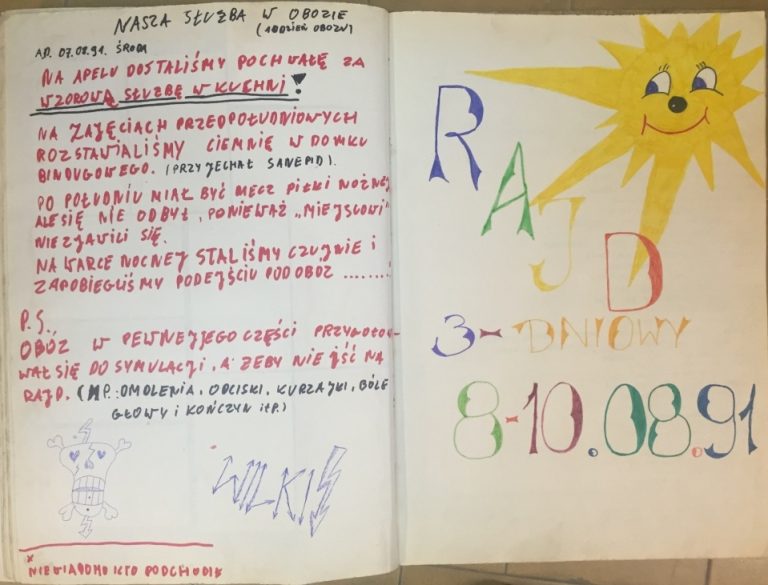 NASZA SŁUŻBA W OBOZIE
(1 DZIEŃ OBOZU)
AD. 07.08.91. ŚRODA
NA APELU DOSTALIŚMY POCHWAŁĘ ZA
WZOROWĄ SŁUŻBĘ W KUCHNI!
NA ZAJĘCIACH PRZEDPOŁUDNIOWYCH
ROZSTAWIALIŚMY CIEMNIĘ W DOMKU
BINDUGOWEGO. (PRZYJECHAŁ SANEPID).
PO POŁUDNIU MIAŁ BYĆ MECZ PIŁKI NOŻNEJ
ALE SIĘ NIE ODBYŁ, PONIEWAŻ „MIEJSCOWI”
NIE ZJAWILI SIĘ.
NA WARCE NOCNEJ STALIŚMY CZUJNIE I
ZAPOBIEGLIŚMY PODEJŚCIU POD OBÓZ ........
P.S.
OBÓZ W PEWNEJ JEGO CZĘŚCI PRZYGOTOWY-
WAŁ SIĘ DO SYMULACJI, A ŻEBY NIE IŚĆ NA
RAJD. (NP.: OMDLENIA, ODCISKI, KURZAJKI, BÓLE
GŁOWY I KOŃCZYN ITP.)
WILKI
* NIEWIADOMO KTO PODCHODIŁ
RAJD
3-DNIOWY
8-10.08.91